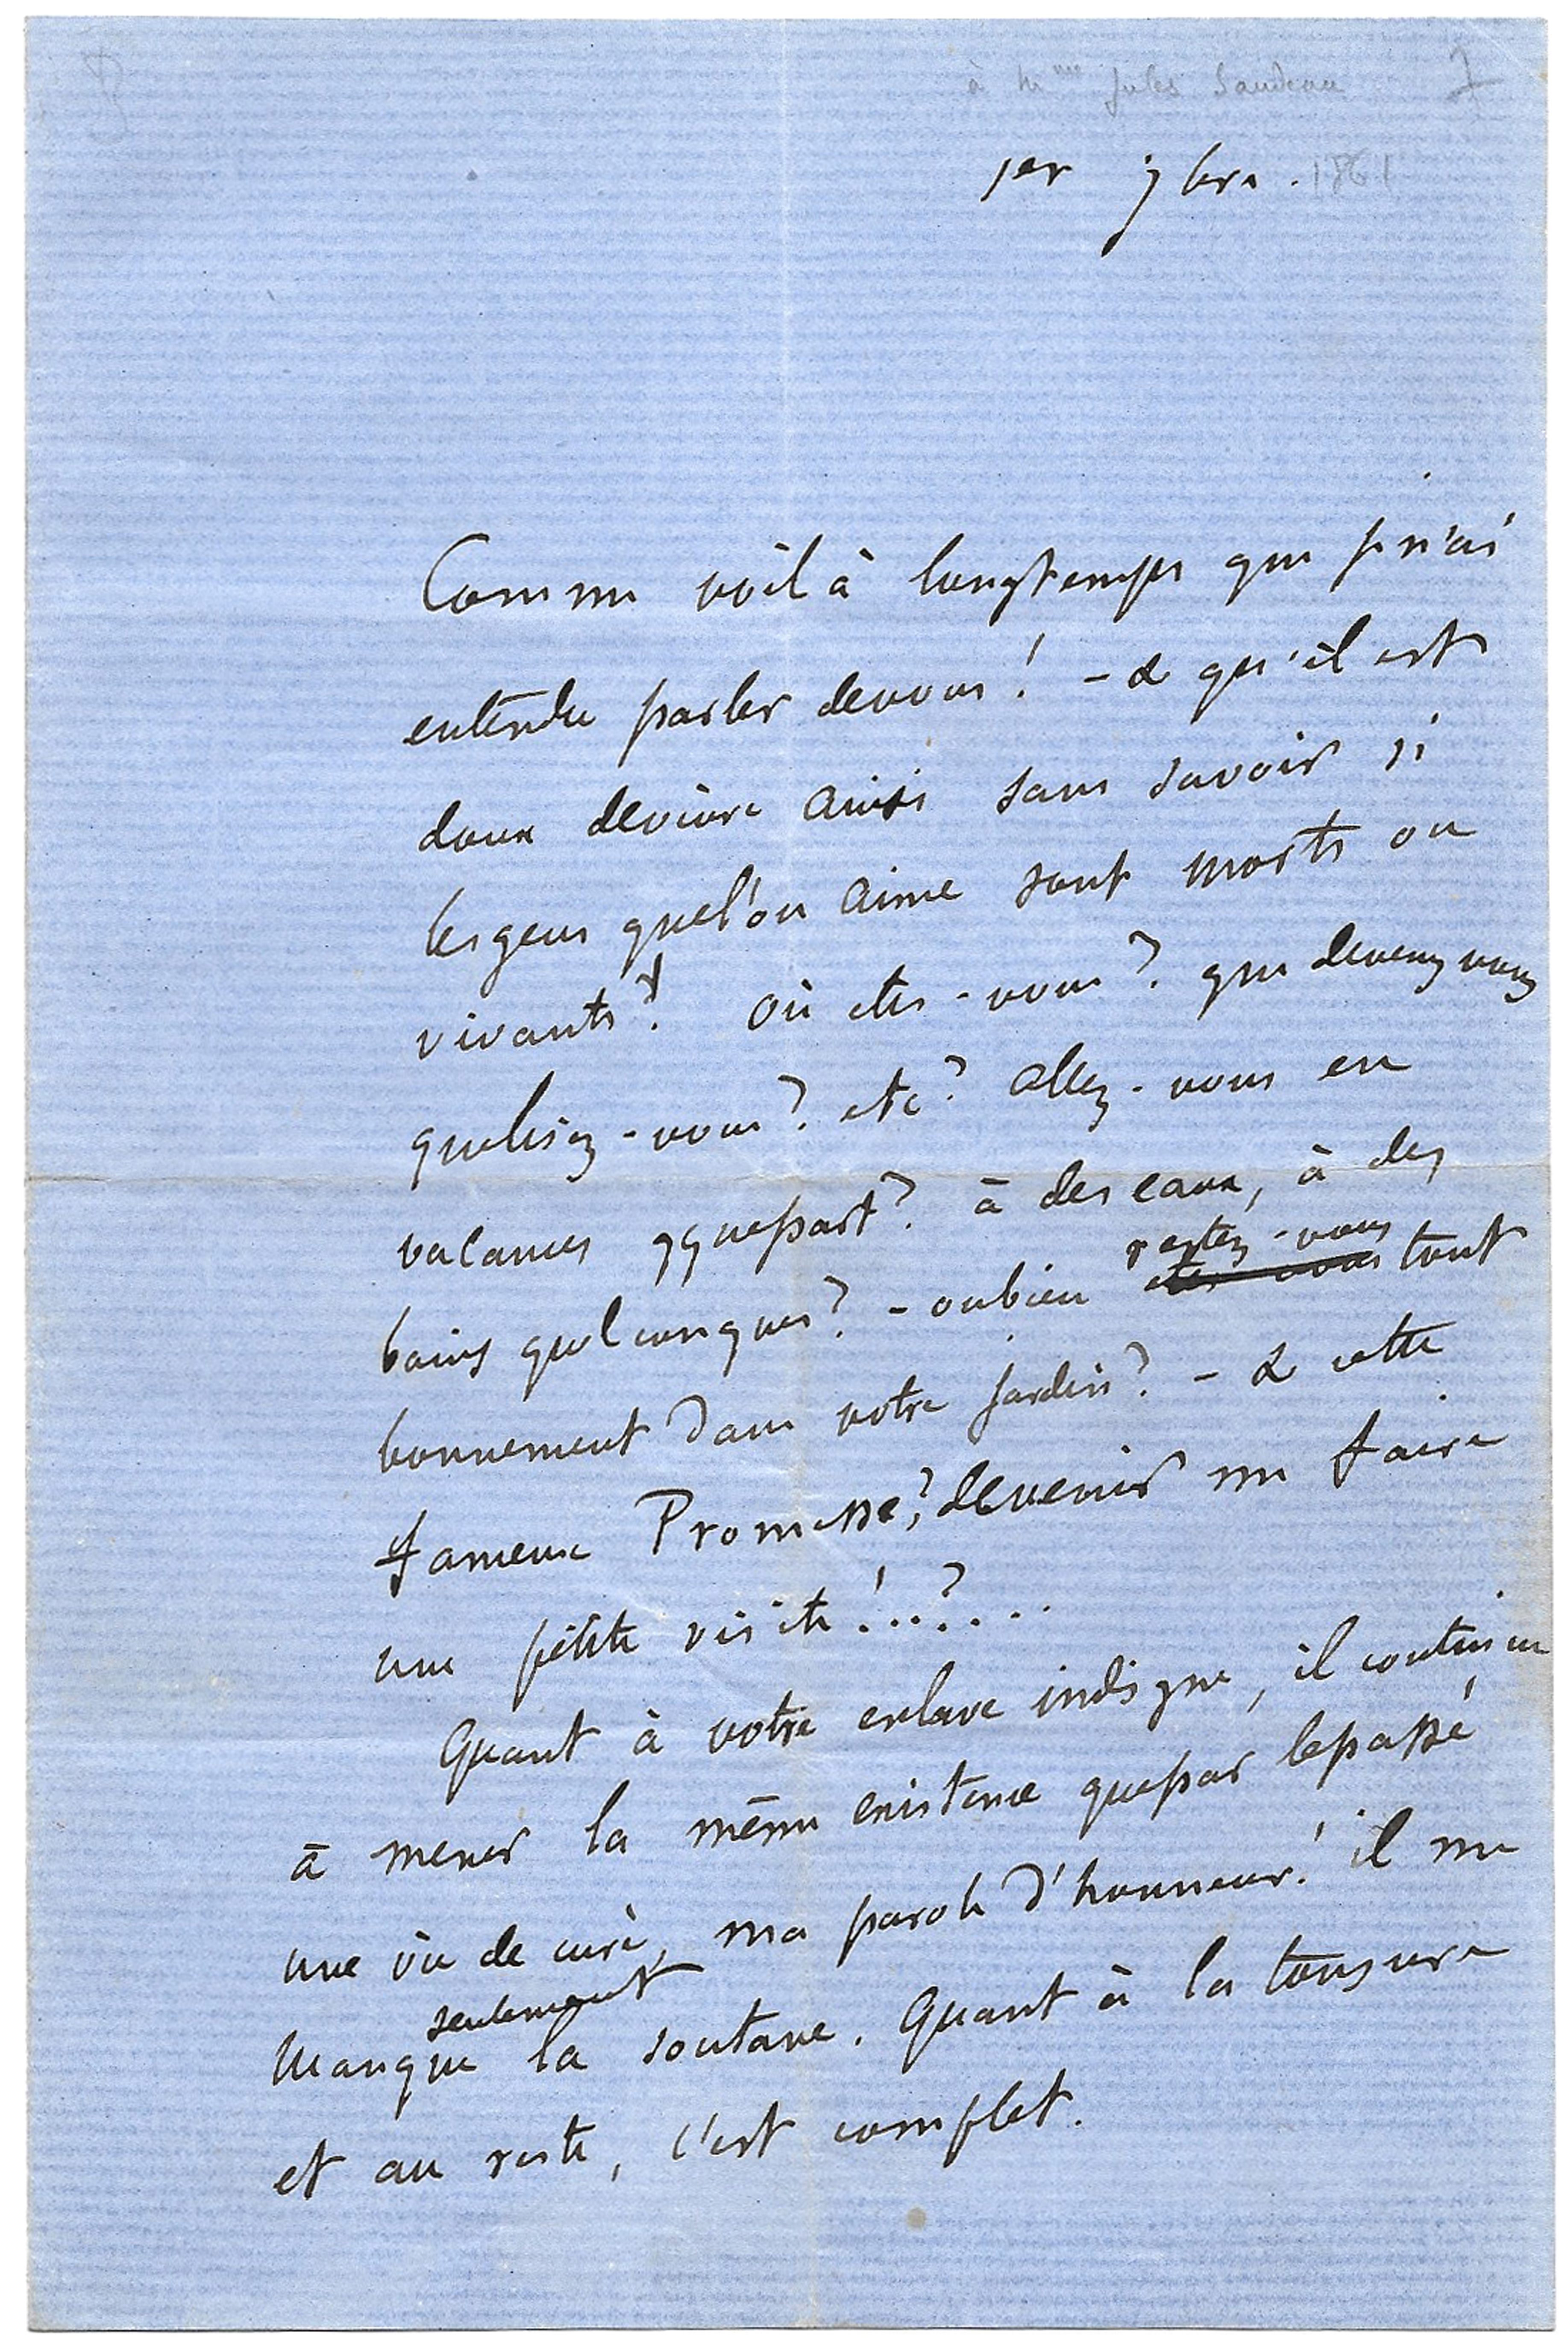 à Mme Jules Sandeau
1er 7bre. 1861
Comme voilà longtemps que je n'ai
entendu parler de vous! - & qu'il est
doux de vivre ainsi sans savoir si
les gens que l'on aime sont morts ou
vivants? Où etes-vous? que devenez vous
que lisez-vous? etc? Allez-vous en
vacances qque part? à des eaux, à des
bains quelconques? - ou bien etes vous restez-vous tout
bonnement dans votre jardin? - & cette
fameuse Promesse?, de venir me faire
une petite visite!..?...
Quant à votre esclave indigne, il continue
à mener la même existence que par le passé
une vie de curé, ma parole d'honneur! il me
manque seulement la soutane. Quant à la tonsure
et au reste, c'est complet.